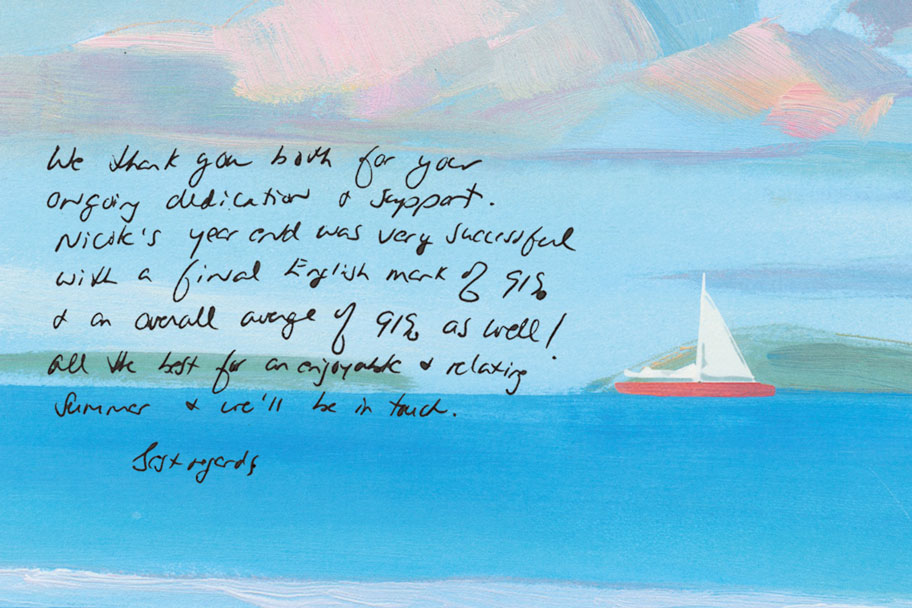 We thank you both for your
ongoing dedication & support.
Nicole's year end was very successful
with a final English mark of 91%
& an overall average of 91% as well!
All the best for an enjoyable & relaxing
Summer & we'll be in touch.
Best regards